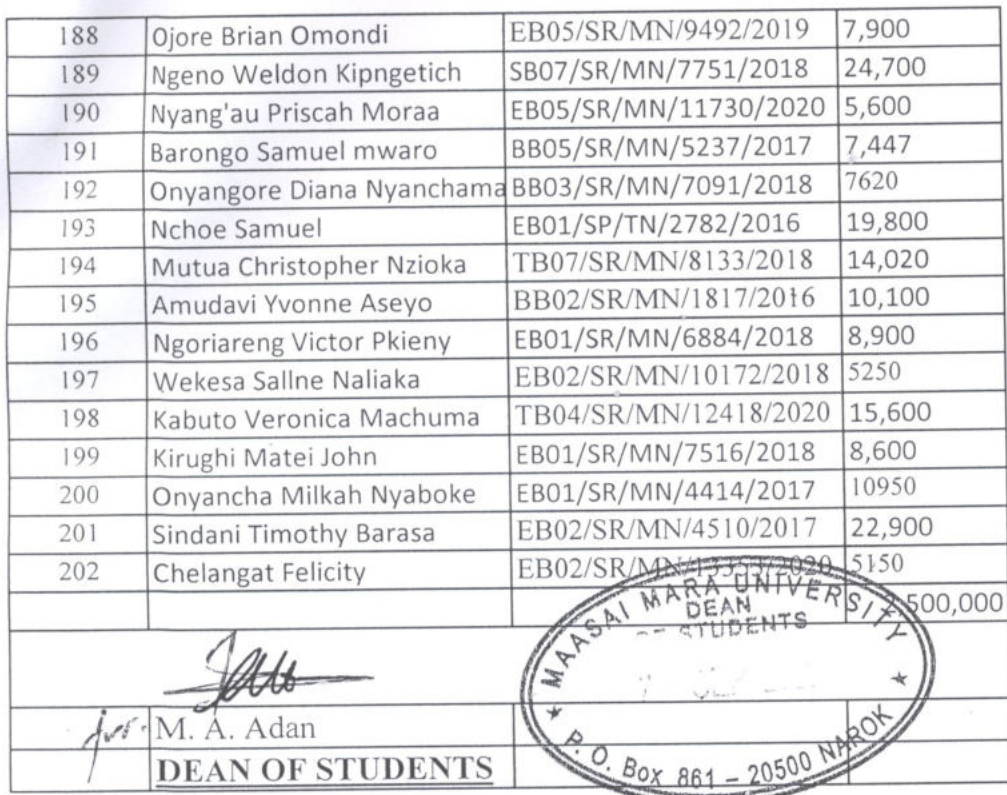 188 Ojore Brian Omondi EB05/SR/MN/9492/2019 7,900
189 Ngeno Weldon Kipngetich SB07/SR/MN/7751/2018 24,700
190 Nyang'au Priscah Moraa EB05/SR/MN/11730/2020 5,600
191 Barongo Samuel mwaro BB05/SR/MN/5237/2017 7,447
192 Onyangore Diana Nyanchama BB03/SR/MN/7091/2018 7620
193 Nchoe Samuel EB01/SP/TN/2782/2016 19,800
194 Mutua Christopher Nzioka TB07/SR/MN/8133/2018 14,020
195 Amudavi Yvonne Aseyo BB02/SR/MN/1817/2016 10,100
196 Ngoriareng Victor Pkieny EB01/SR/MN/6884/2018 8,900
197 Wekesa Sallne Naliaka EB02/SR/MN/10172/2018 5250
198 Kabuto Veronica Machuma TB04/SR/MN/12418/2020 15,600
199 Kirughi Matei John EB01/SR/MN/7516/2018 8,600
200 Onyancha Milkah Nyaboke EB01/SR/MN/4414/2017 10950
201 Sindani Timothy Barasa EB02/SR/MN/4510/2017 22,900
202 Chelangat Felicity 5150
500,000
MAASAI MARA UNIVERSITY
DEAN
STUDENTS
P. O. Box 861 – 20500 NAROK
for M. A. Adan
DEAN OF STUDENTS